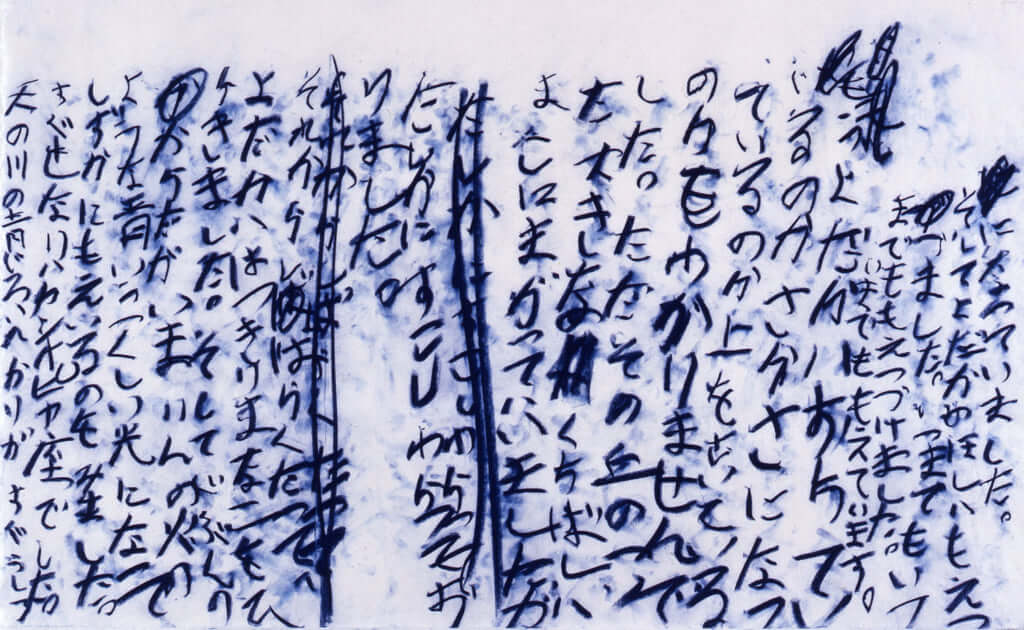 になっていました。
そしてよだかの星はもえつ
づけました。いつまでもいつ
までももえつづけました。
いまでももえています。
よだかハおちてい
るのかさかさになっ
ているのか上をむいている
のかもわかりませんで
した。ただその血のつい
た大きなくちばしハ
よこにまがってハいましたが
たしかにすこしわらっ
たしかにすこしわらってお
りました。
それからしばらく
それからしばらくたって
よだかハはっきりまなこをひ
らきました。そしてじぶんの
からだがいまりんの火の
ような青いうつくしい光になって
しずかにもえているのを見ました。
すぐとなりハカシオピヤ座でした。
天の川の青じろいひかりがすぐうしろ